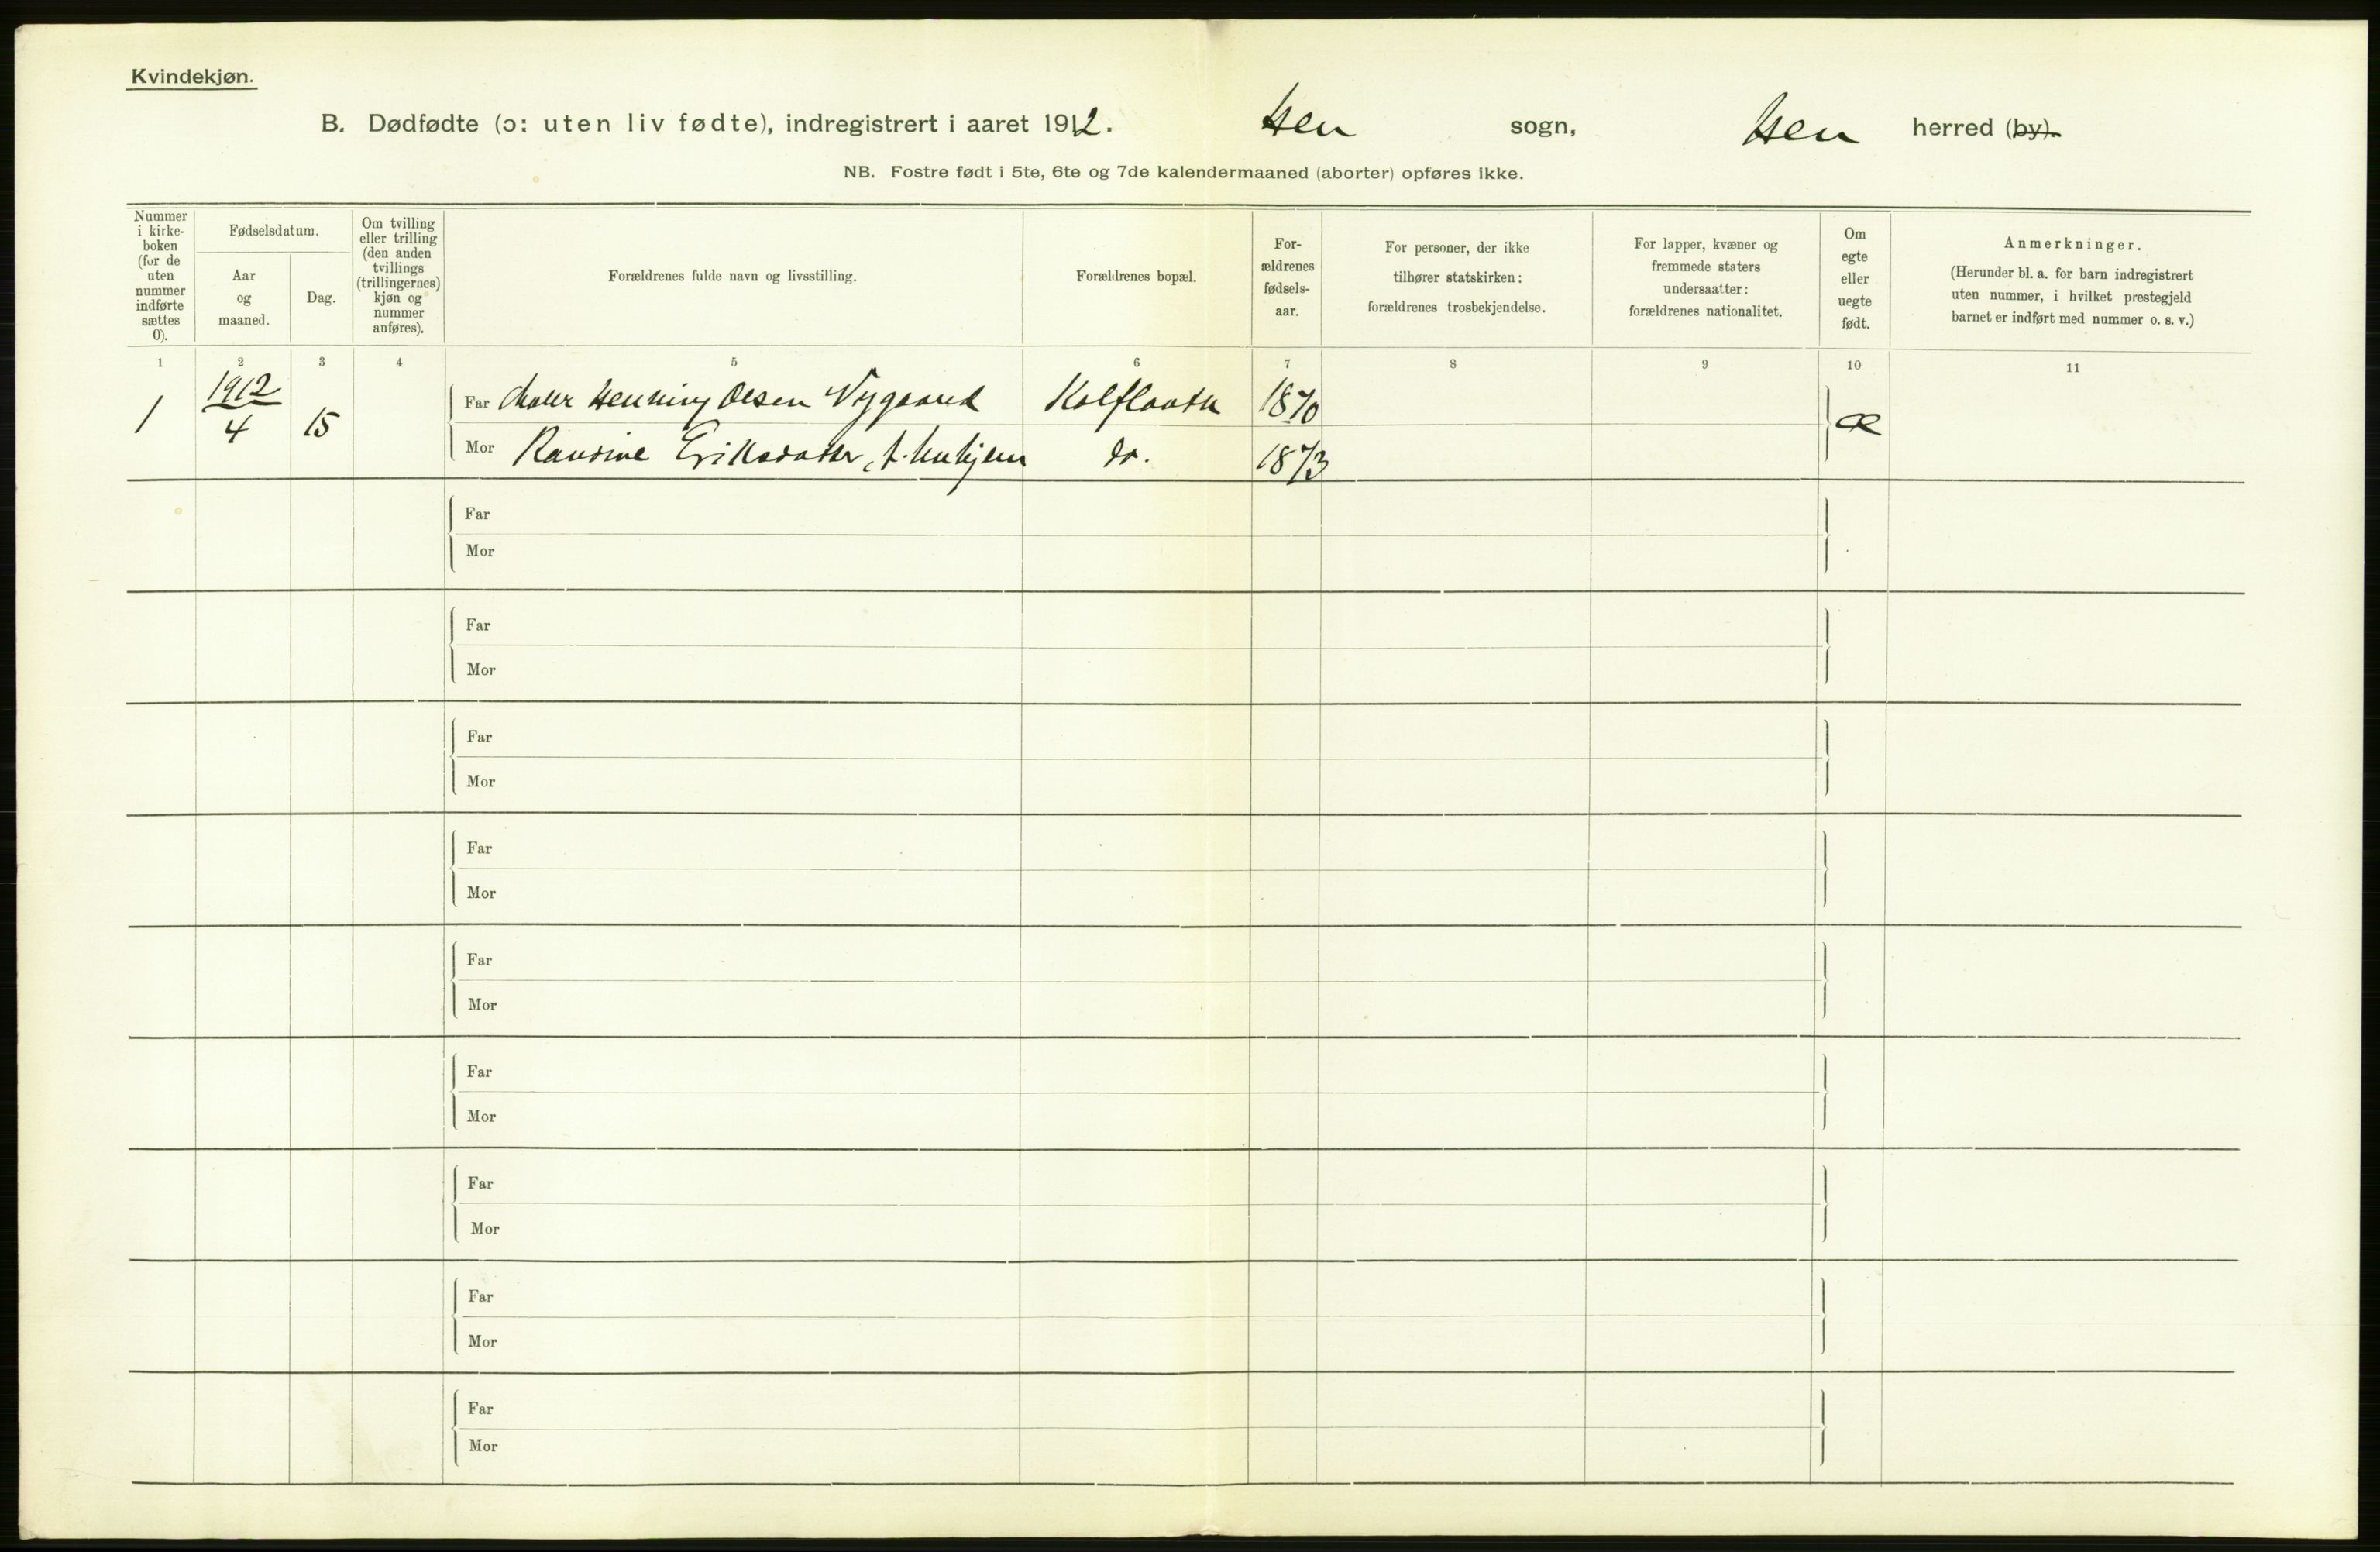 Kvindekjøn.
B. Dødfødte (ɔ: uten liv fødte), indregistrert i aaret 1912. Hen sogn, Hen herred (by).
NB. Fostre født i 5te, 6te og 7de kalendermaaned (aborter) opføres ikke.
Nummer
i kirke-
boken
(for de
uten
nummer
indførte
sættes
0).
Fødselsdatum.
Aar
og
maaned.
Dag.
Om tvilling
eller trilling
(den anden
tvillings
(trillingernes)
kjøn og
nummer
anføres).
Forældrenes fulde navn og livsstilling.
Forældrenes bopæl.
For-
ældrenes
fødsels-
aar.
For personer, der ikke
tilhører statskirken:
forældrenes trosbekjendelse.
For lapper, kvæner og
fremmede staters
undersaatter:
forældrenes nationalitet.
Om
egte
eller
uegte
født.
Anmerkninger.
(Herunder bl. a. for barn indregistrert
uten nummer, i hvilket prestegjeld
barnet er indført med nummer o. s. v.)
1 2 3 4 5 6 7 8 9 10 11
1 1912 4 15
Far Maler Henning Olsen Nygaard Kolflaath 1870
Mor Randine Eriksdatter, f. do. 1873
Æ
Far
Mor
Far
Mor
Far
Mor
Far
Mor
Far
Mor
Far
Mor
Far
Mor
Far
Mor
Far
Mor